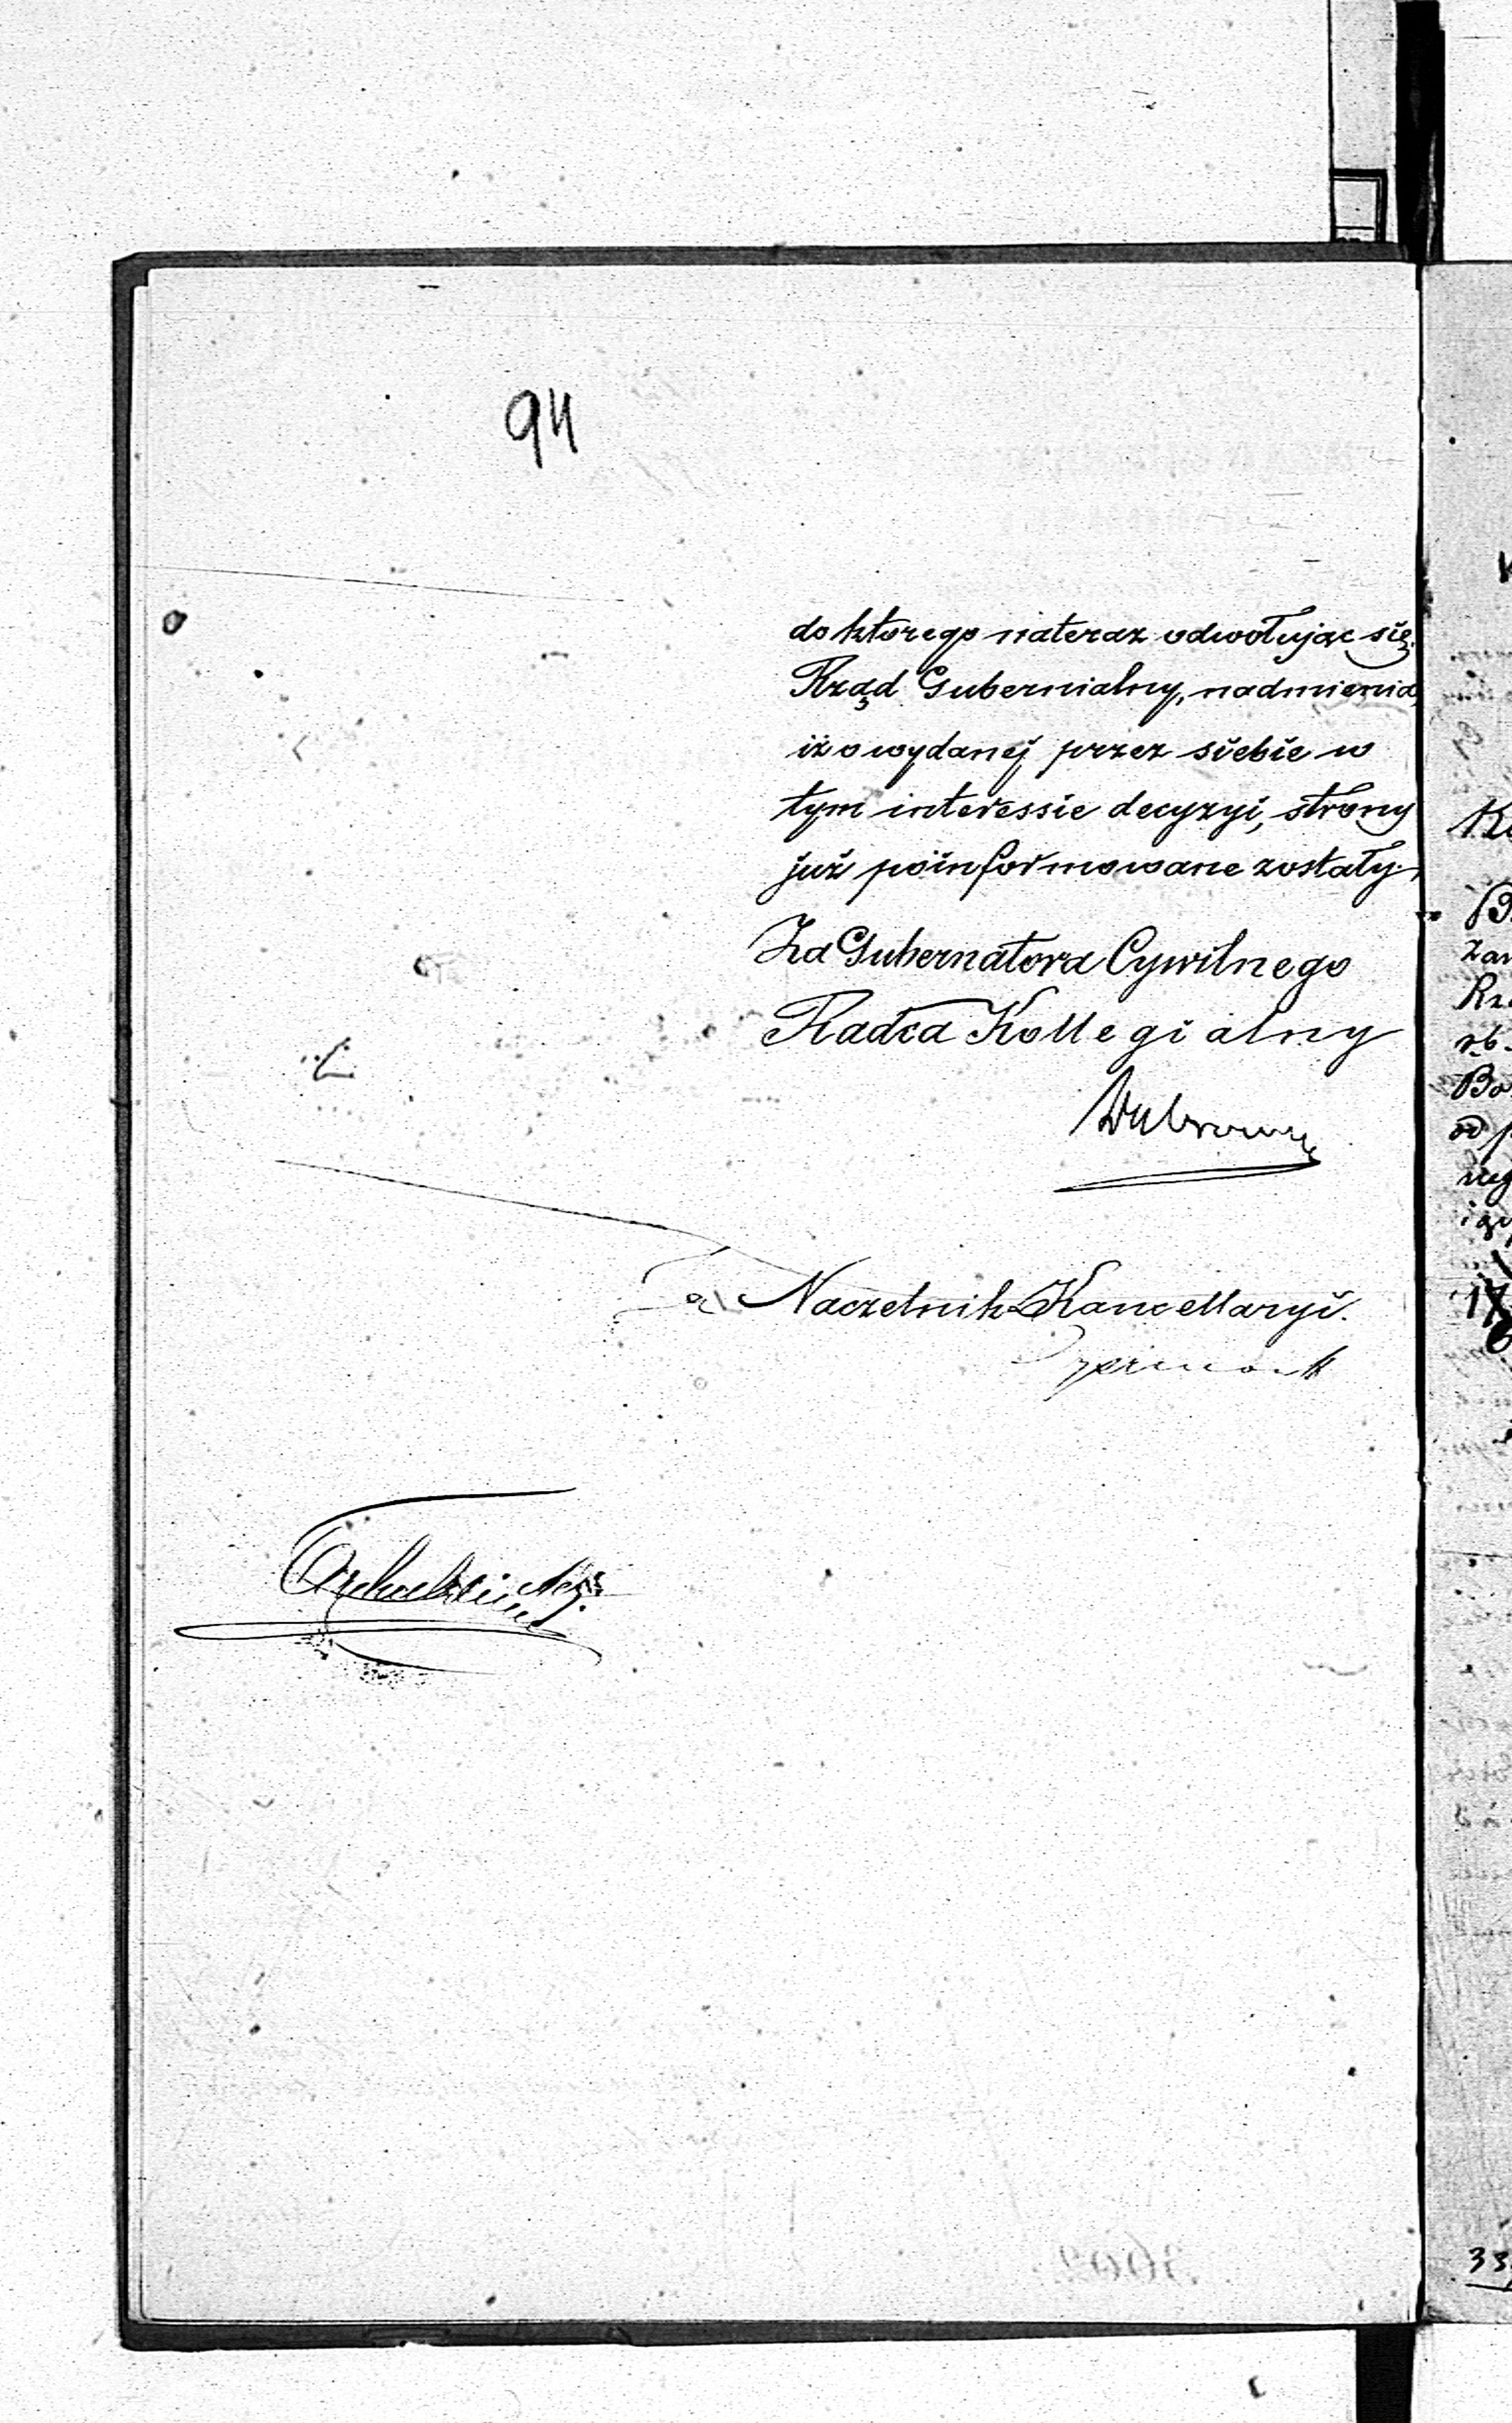 94
do którego nateraz odwołując się
Rząd Gubernialny, nadmienia,
iż o wydanej przez siebie w
tym interessie decyzyi, strony
już poinformowane zostały.
Za Gubernatora Cywilnego
Radca Kollegialny
Naczelnik Kancellaryi.